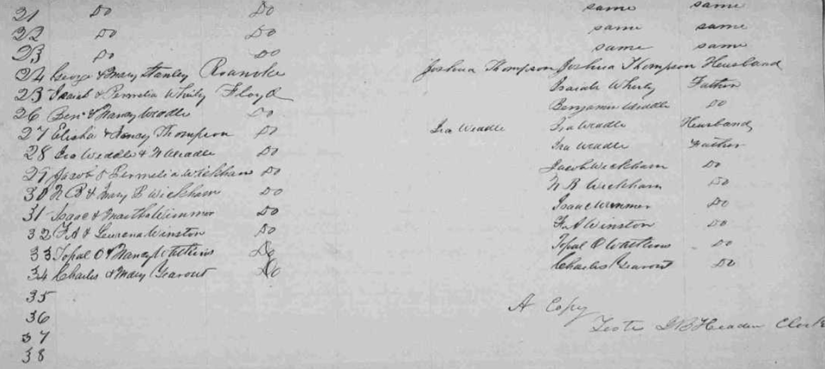 21 Do Do same same
22 Do Do same same
23 Do Do same same
24 George & Mary Stanley Roanoke Joshua Thompson Joshua Thompson Husband
25 Isaiah & Permelia Whirly Floyd Isaiah Whirly Father
26 Benj & Nancy Weddle Do Benjamin Weddle Do
27 Elisha & Nancy Thompson Do Ira Weddle Ira Weddle Husband
28 Ira Weddle & N Weddle Do Ira Weddle Father
29 Jacob & Permelia Wickham Do Jacob Wickham Do
30 N B & Mary Wickham Do N B Wickham Do
31 Isaac & Martha Wimmer Do Isaac Wimmer Do
32 & Winston Do Winston Do
33 & Nancy Watkins Do Watkins Do
34 Charles & Mary Do Charles Do
35
36 A Copy
37 Teste Headen Clerk
38